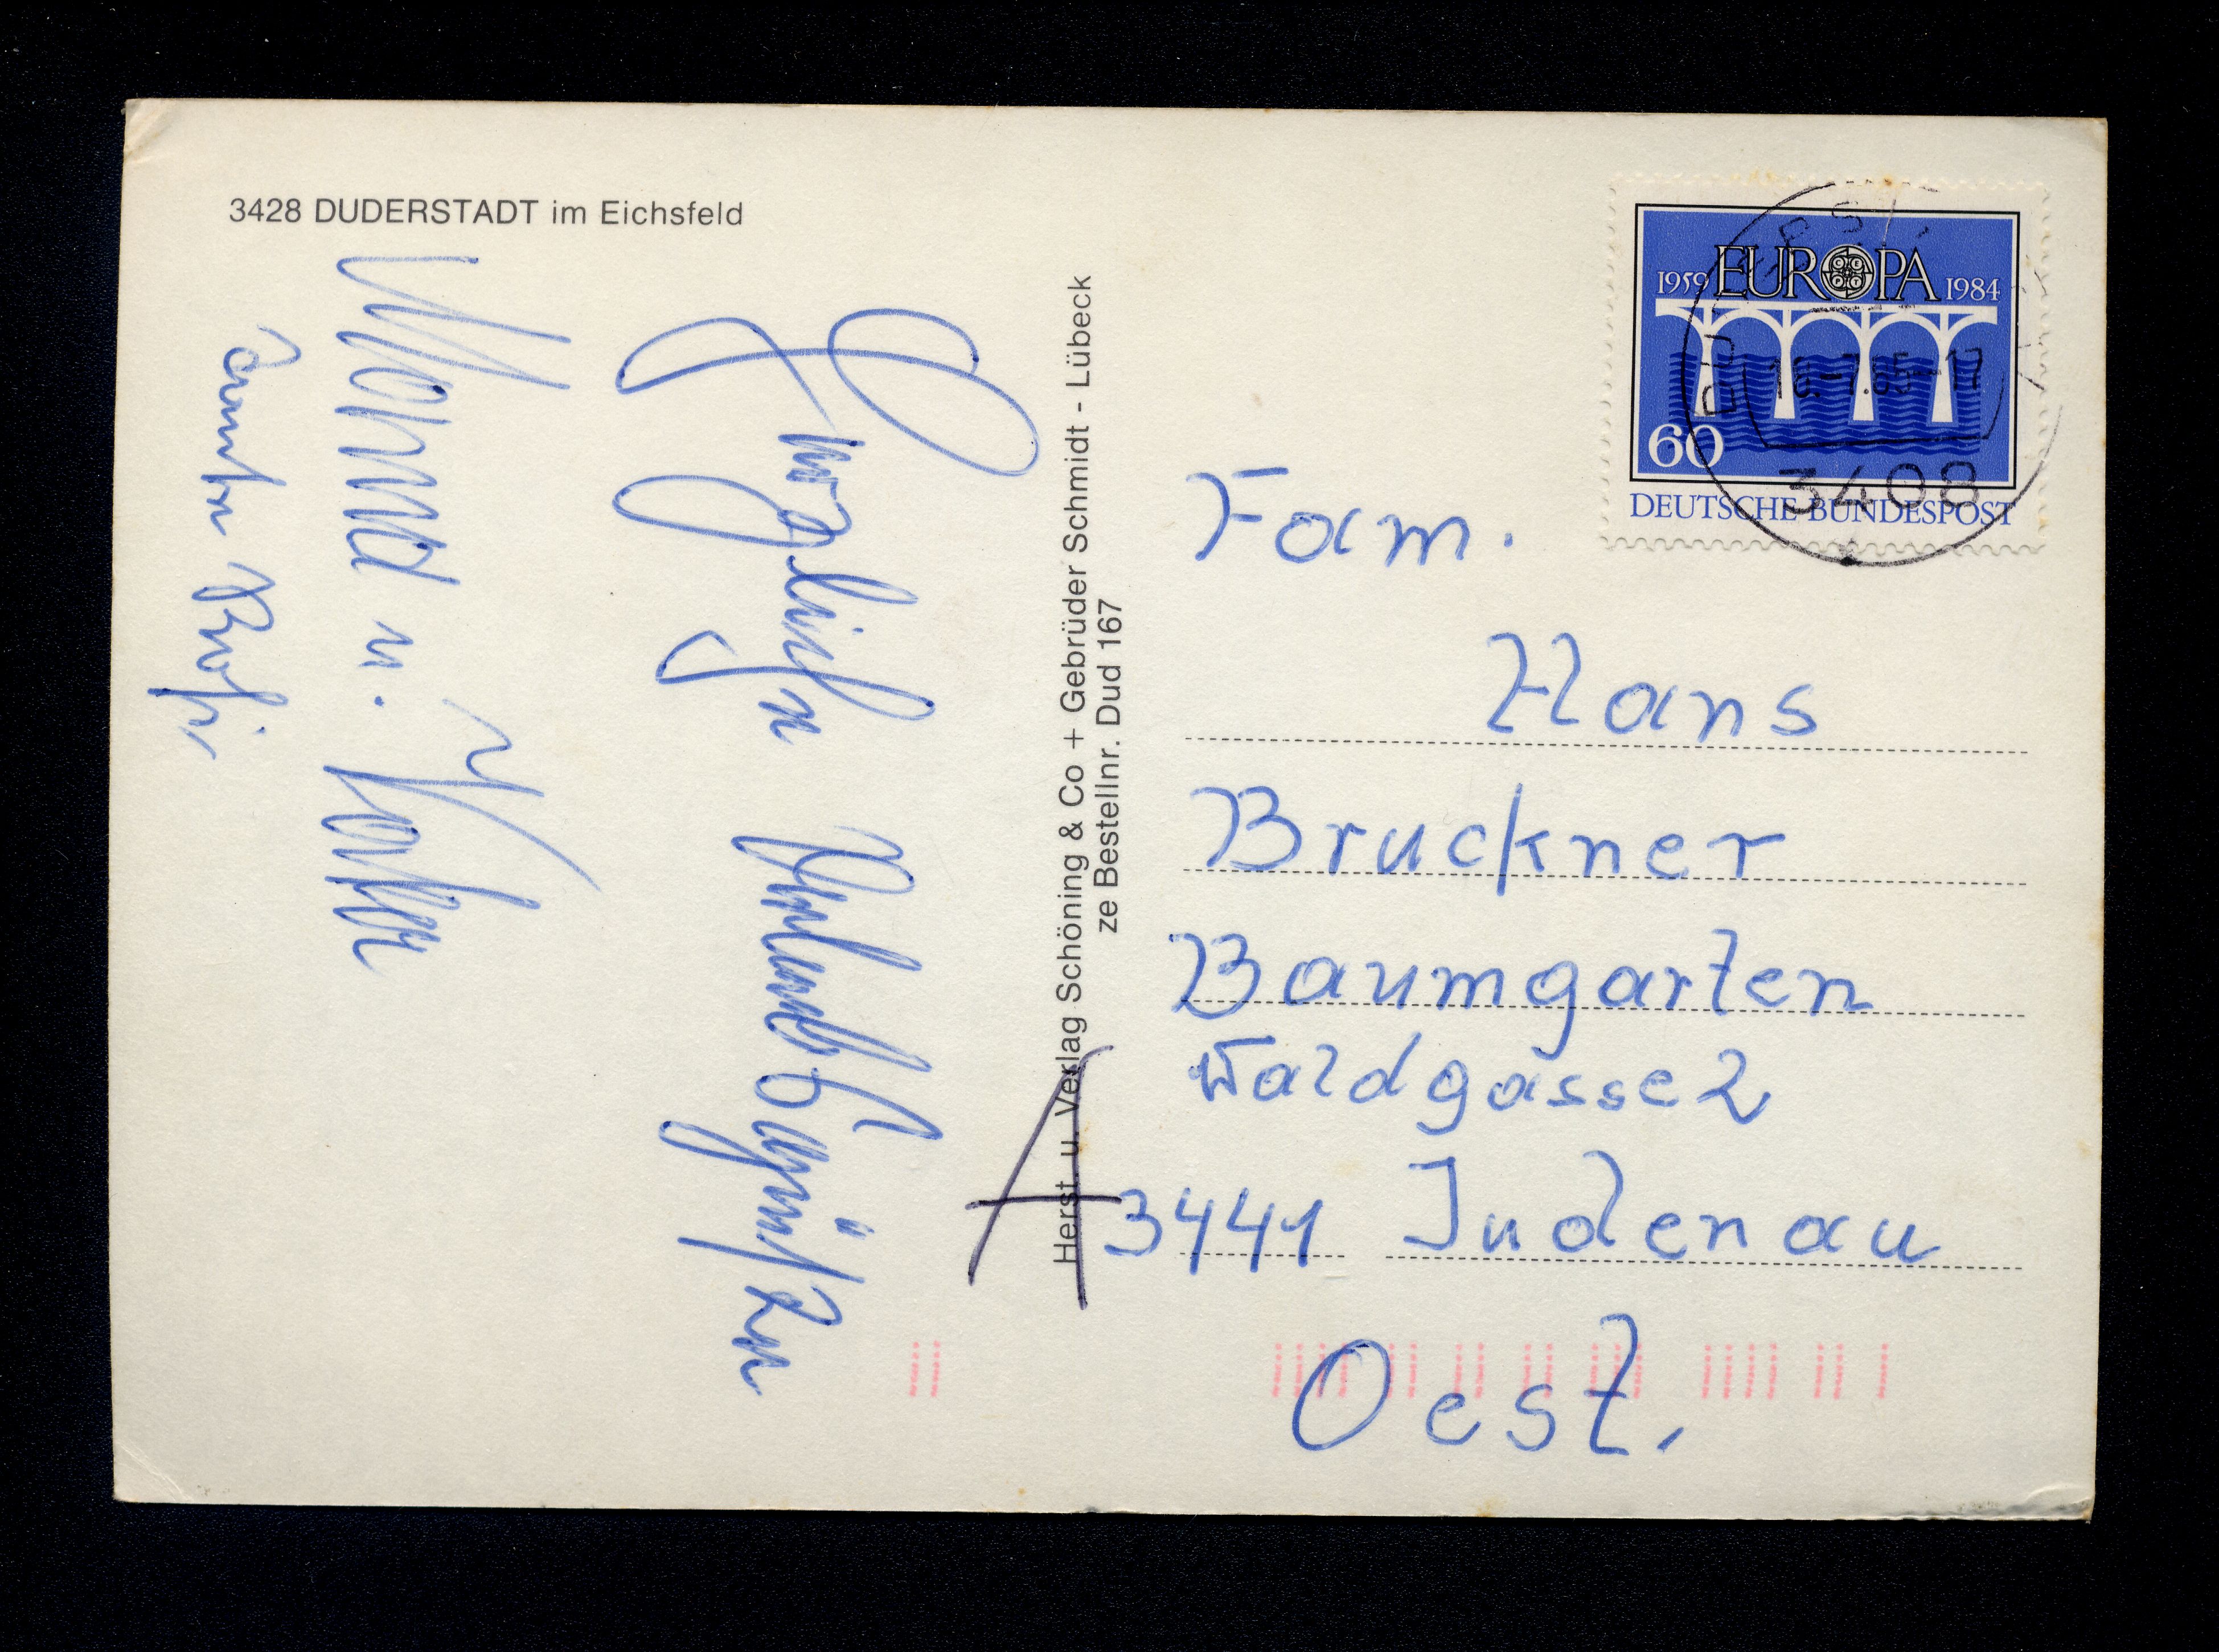 3428 DUDERSTADT im Eichsfeld
Herzlichen Urlaubsgrüßen
u.
Herst. u. Verlag Schöning & Co + Gebrüder Schmidt - Lübeck
ze Bestellnr. Dud 167
1959 EUROPA 1984
60
DEUTSCHE BUNDESPOST
3408
Fam.
Hans
Bruckner
Baumgarten
Waldgasse 2
A 3441 Judenau
Oest.